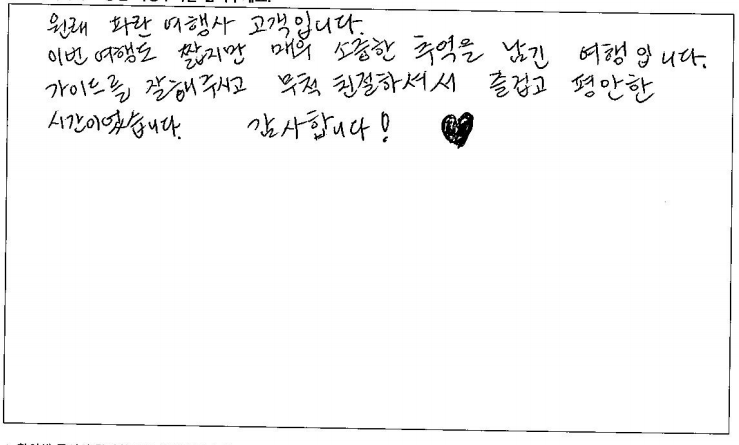 원래 파란 여행사 고객입니다.
이번 여행도 짧지만 매우 소중한 추억을 남긴 여행입니다.
가이드를 잘해주시고 무척 친절하셔서 즐겁고 평안한
시간이었습니다. 감사합니다!